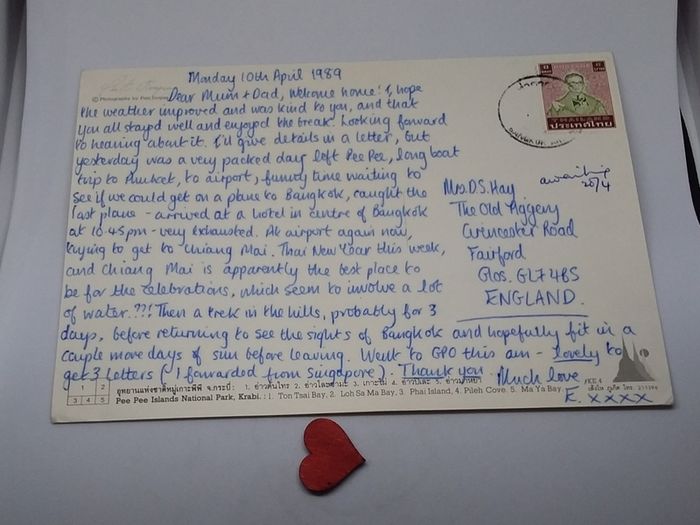 Monday 10th April 1989
© Photography by Pee
Dear Mum & Dad, Welcome home! I hope
the weather improved and was kind to you, and that
you all stayed well and enjoyed the break. Looking forward
to hearing about it. I'll give details in a letter, but
yesterday was a very packed day left Pee Pee, long boat
trip to Phuket, to airport, funny time waiting to
see if we could get on a plane to Bangkok, caught the
last plane - arrived at a hotel in centre of Bangkok
at 10.45pm - very exhausted. At airport again now,
trying to get to Chiang Mai. Thai New Year this week,
and Chiang Mai is apparently the best place to
be for the celebrations, which seem to involve a lot
of water.??! Then a trek in the hills, probably for 3
days, before returning to see the sights of Bangkok and hopefully fit in a
couple more days of sun before leaving. Went to GPO this am - lovely to
get 3 letters (1 forwarded from Singapore). Thank you. Much love
E. xxxx
THAILAND
ประเทศไทย
20/4
Mrs. D.S. Hay
The Old Piggery
Cirencester Road
Fairford
Glos. GL7 4BS
ENGLAND.
1 2
3 4 5
อุทยานแห่งชาติหมู่เกาะพีพี จ.กระบี่ : 1. อ่าวต้นไทร 2. อ่าวโละซะมะ 3. เกาะไผ่ 4. อ่าวปิเละ 5. อ่าวมาหยา
Pee Pee Islands National Park, Krabi. : 1. Ton Tsai Bay, 2. Loh Sa Ma Bay, 3. Phai Island, 4. Pileh Cove. 5. Ma Ya Bay